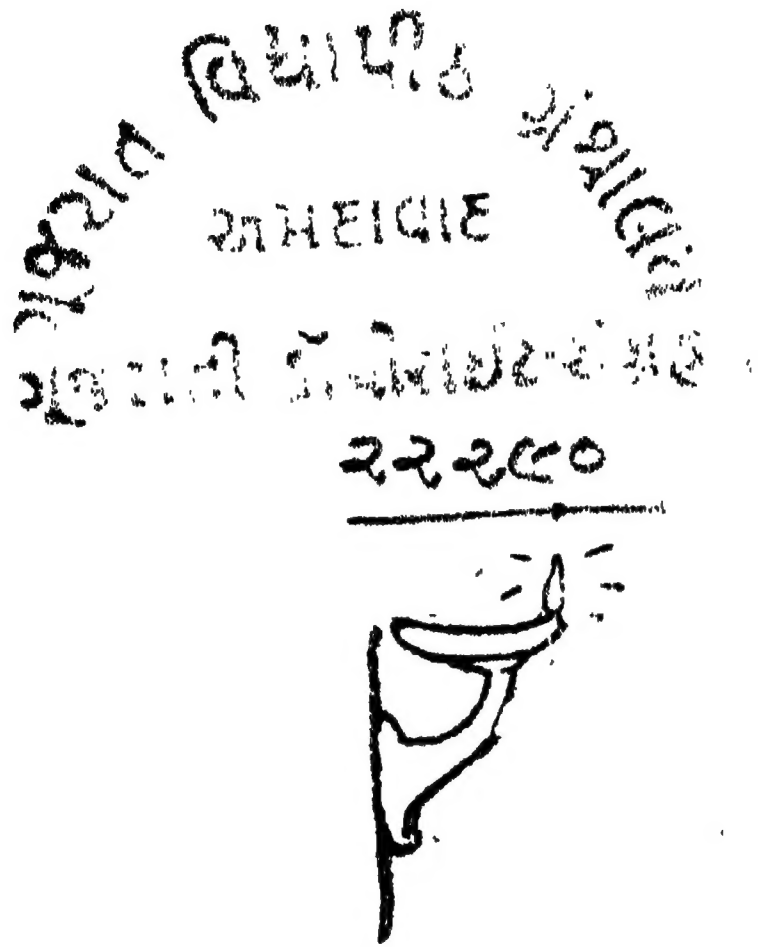 ગૂજરાત વિદ્યાપીઠ ગ્રંથાલય
અમદાવાદ
ગુજરાતી કૉપીરાઈટ-સંગ્રહ
૨૨૨૯૦